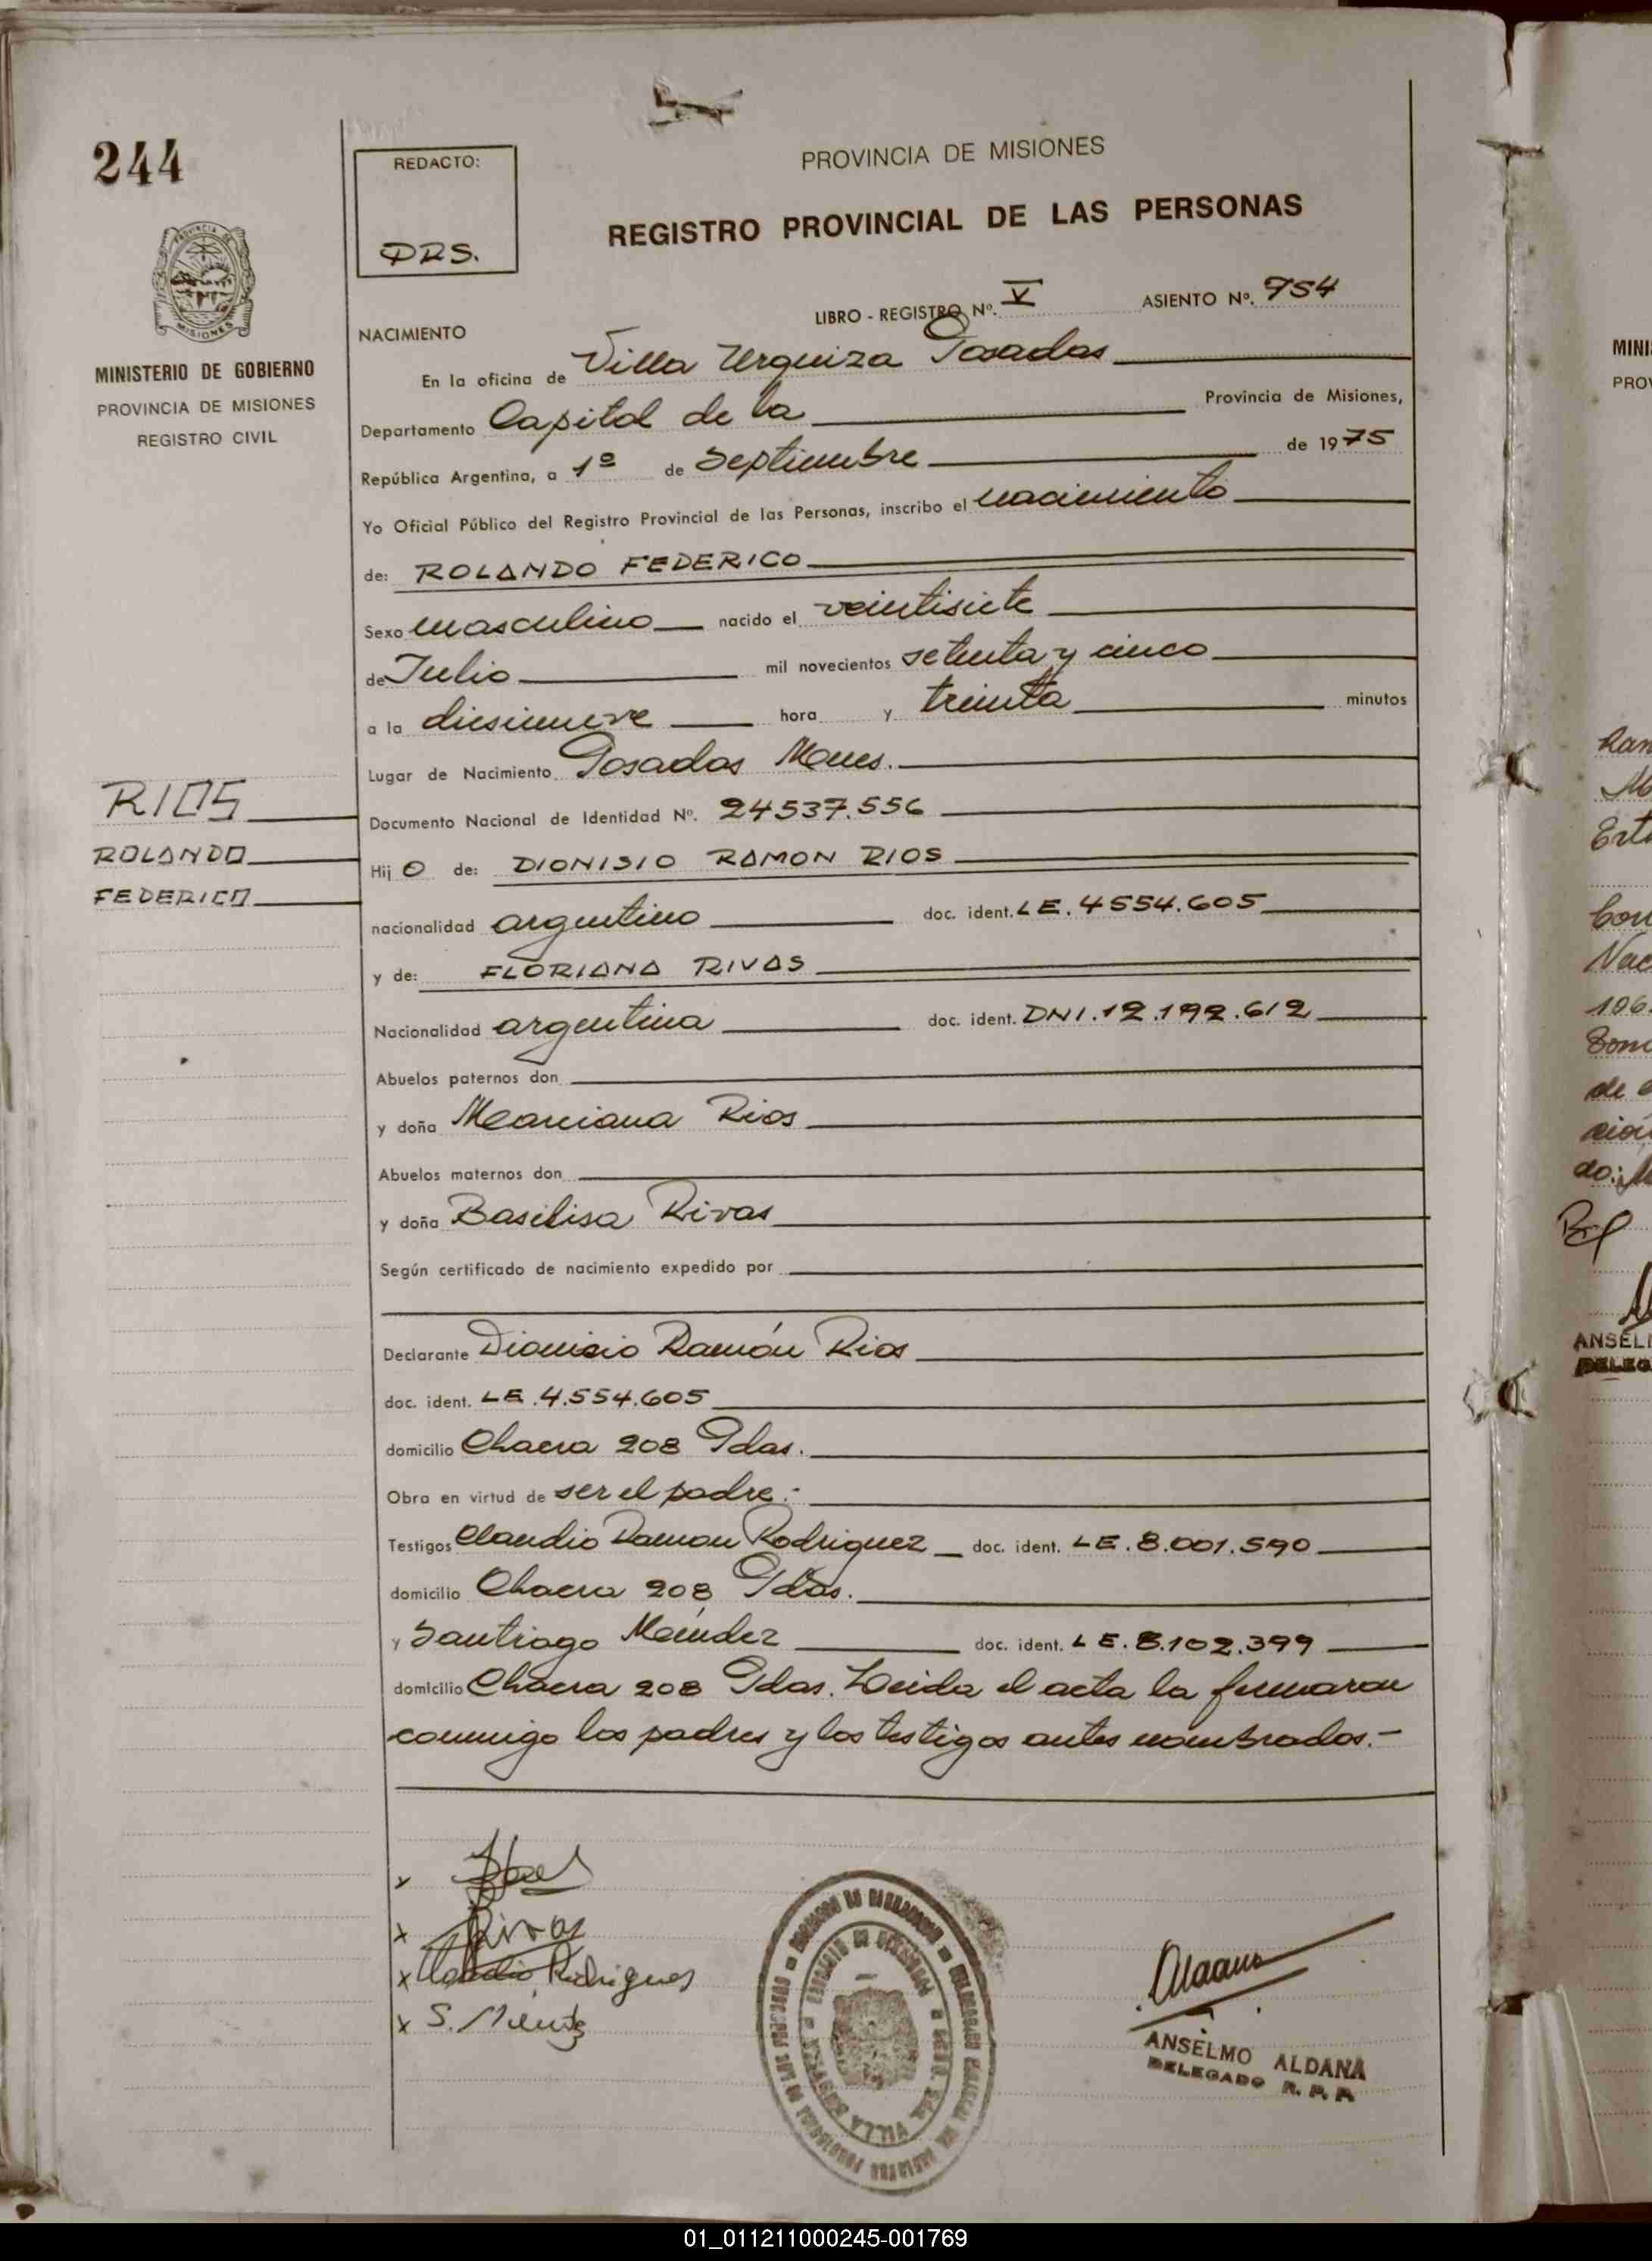 244
REDACTO:
DRS.
PROVINCIA DE MISIONES
REGISTRO PROVINCIAL DE LAS PERSONAS
PROVINCIA DE
MISIONES
MINISTERIO DE GOBIERNO
PROVINCIA DE MISIONES
REGISTRO CIVIL
LIBRO - REGISTRO Nº. V ASIENTO Nº. 754
NACIMIENTO
En la oficina de Villa Urquiza Posadas
Departamento Capital de la Provincia de Misiones,
República Argentina, a 1º de Septiembre de 1975
Yo Oficial Público del Registro Provincial de las Personas, inscribo el nacimiento
de: ROLANDO FEDERICO
Sexo masculino nacido el veintisiete
de Julio mil novecientos setenta y cinco
a la diesinueve hora y treinta minutos
Lugar de Nacimiento Posadas Mnes.
RIOS
ROLANDO
FEDERICO
Documento Nacional de Identidad Nº. 24537.556
Hij o de: DIONISIO RAMON RIOS
nacionalidad argentino doc. ident. LE. 4554.605
y de: FLORIANA RIVAS
Nacionalidad argentina doc. ident. DNI. 12.192.612
Abuelos paternos don
y doña Marciana Rios
Abuelos maternos don
y doña Basilisa Rivas
Según certificado de nacimiento expedido por
Declarante Dionisio Ramón Rios
doc. ident. LE. 4.554.605
domicilio Chacra 208 Pdas.
Obra en virtud de ser el padre.-
Testigos Claudio Ramon Rodriguez doc. ident. LE. 8.001.590
domicilio Chacra 208 Pdas.
y Santiago Méndez doc. ident. LE. 8.102.399
domicilio Chacra 208 Pdas. Leida el acta la firmaron
conmigo los padres y los testigos antes nombrados.-
x
x Rivas
x Claudio Rodrigues
x S. Mendz
VILLA URQUIZA
ANSELMO ALDANA
DELEGADO R. P. P.
MINI
PROV
ANSEL
DELEG
01_011211000245-001769